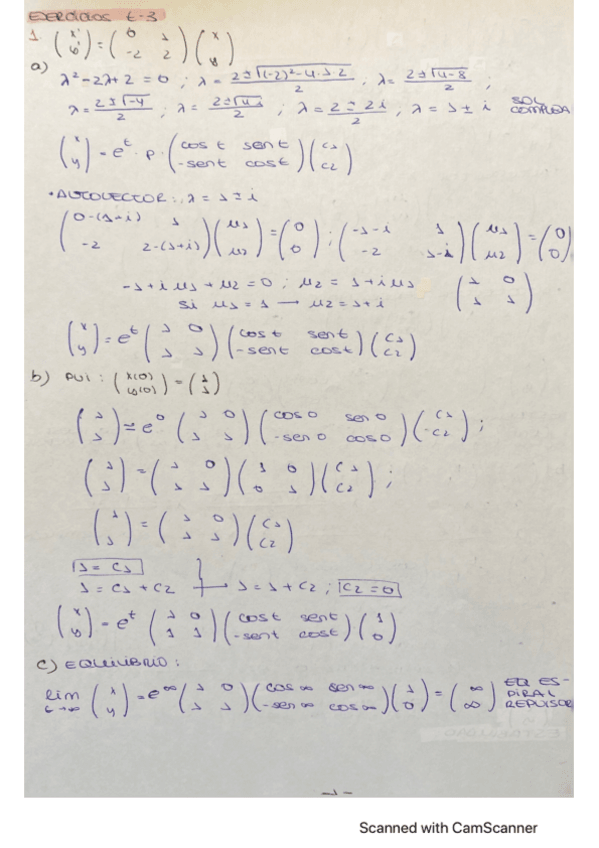 EJERCICIOS t-3
1. (x' y') = (0 1 -2 2)(x y)
a)
λ²-2λ+2 = 0 ; λ = 2±√(-2)²-4·1·2 / 2 ; λ = 2±√4-8 / 2 ;
λ = 2±√-4 / 2 ; λ = 2±√4i / 2 ; λ = 2±2i / 2 ; λ = 1±i SOL COMPLEJA
(x y) = eᵗ · P · (cos t sen t -sen t cos t)(C1 C2)
• AUTOVECTOR: λ = 1±i
(0-(1+i) 1 -2 2-(1+i))(μ1 μ2) = (0 0) ; (-1-i 1 -2 1-i)(μ1 μ2) = (0 0)
-1+i μ1 + μ2 = 0 ; μ2 = 1+i μ1 (1 0 1 1)
Si μ1 = 1 → μ2 = 1+i
(x y) = eᵗ (1 0 1 1)(cos t sen t -sen t cos t)(C1 C2)
b) PVI : (x(0) y(0)) = (1 1)
(1 1) = e⁰ (1 0 1 1)(cos 0 sen 0 -sen 0 cos 0)(C1 C2) ;
(1 1) = (1 0 1 1)(1 0 0 1)(C1 C2) ;
(1 1) = (1 0 1 1)(C1 C2)
1 = C1
1 = C1 + C2 → 1 = 1 + C2 ; C2 = 0
(x y) = eᵗ (1 0 1 1)(cos t sen t -sen t cos t)(1 0)
c) EQUILIBRIO :
lim t→∞ (x y) = e^∞ (1 0 1 1)(cos ∞ sen ∞ -sen ∞ cos ∞)(1 0) = (∞ ∞) EQ ES-
PIRAL
REPULSOR
-1-
Scanned with CamScanner